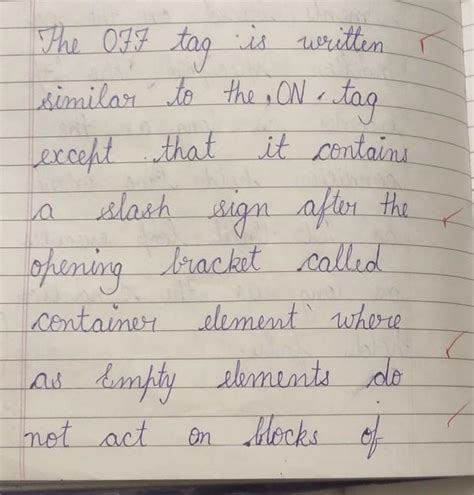 The OFF tag is written
similar to the "ON" tag
except that it contains
a slash sign after the
opening bracket called
container element where
as Empty elements do
not act on blocks of